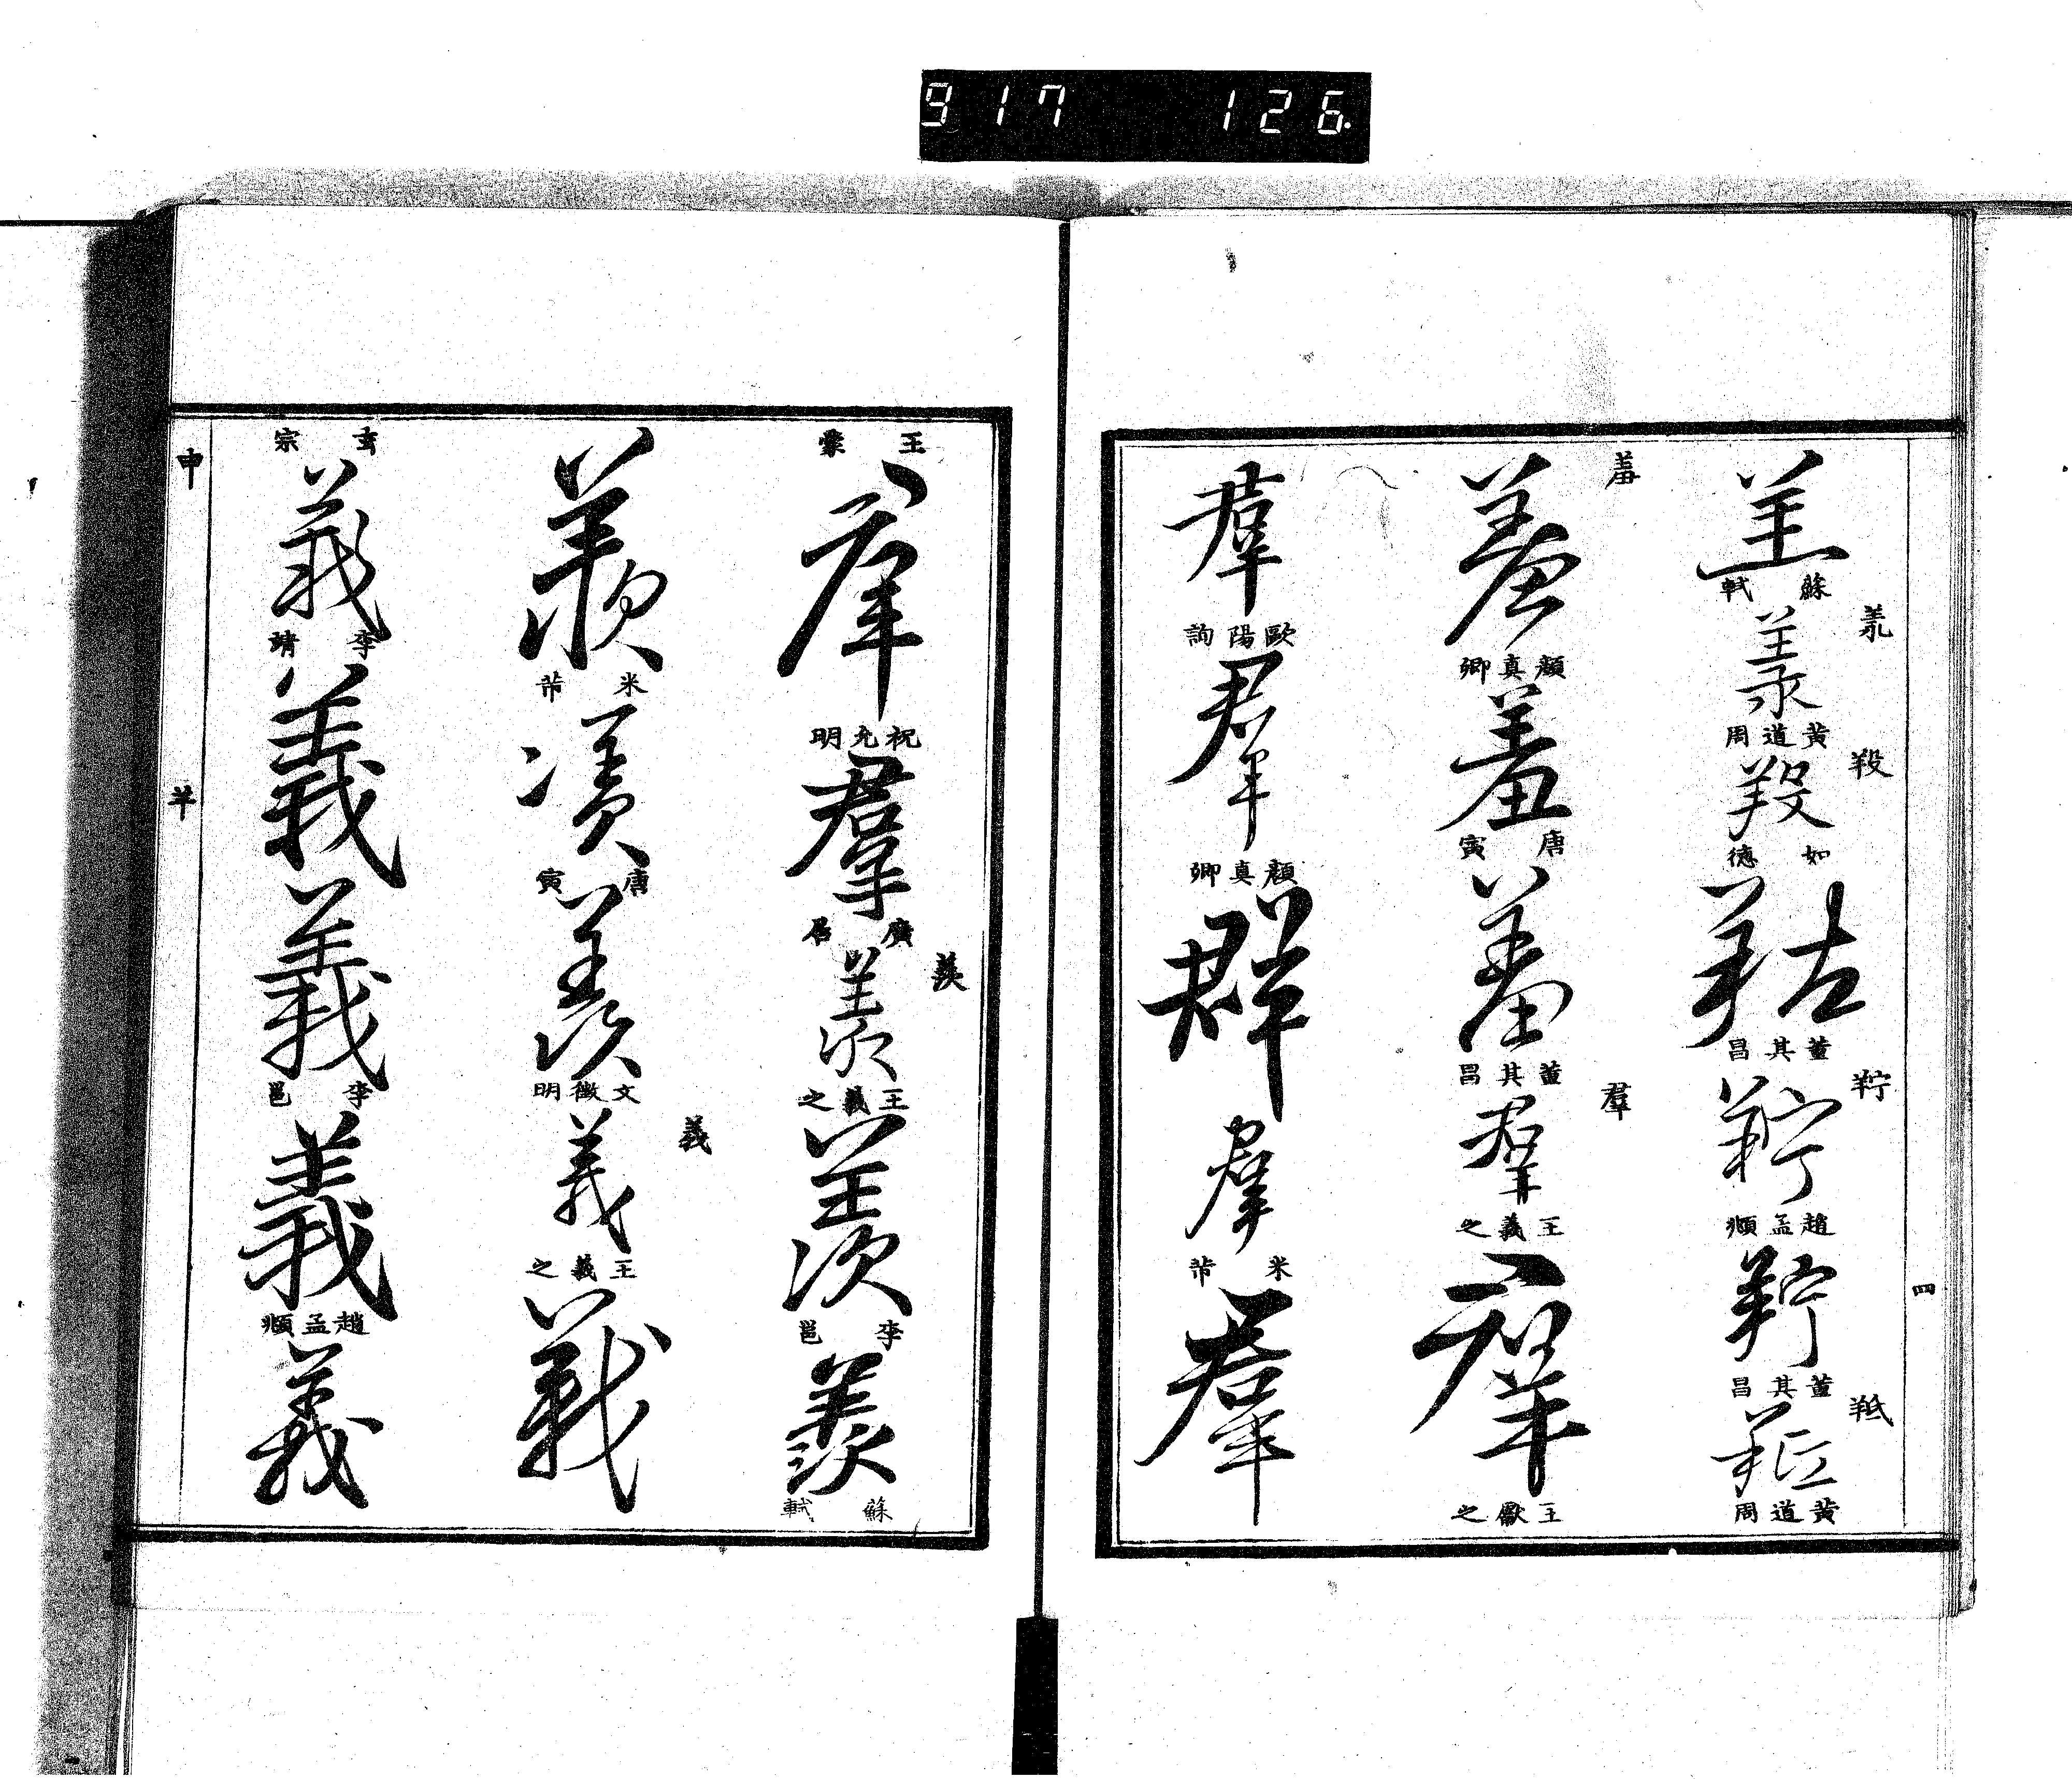 917 126
四
羔
蘇軾
羕
黃道周
羖
羖
如德
羖
董其昌
羜
羜
趙孟頫
羜
董其昌
羝
羝
黃道周
羞
羞
顏真卿
羞
唐寅
羞
董其昌
羣
羣
王羲之
羣
王獻之
羣
歐陽詢
羣
顏真卿
群
羣
米芾
羣
王蒙
羣
祝允明
羣
羨
羨
王羲之
羨
李邕
羨
蘇軾
羨
米芾
羨
唐寅
羨
文徵明
義
義
王羲之
義
玄宗
義
李靖
義
義
李邕
義
趙孟頫
義
申
羊